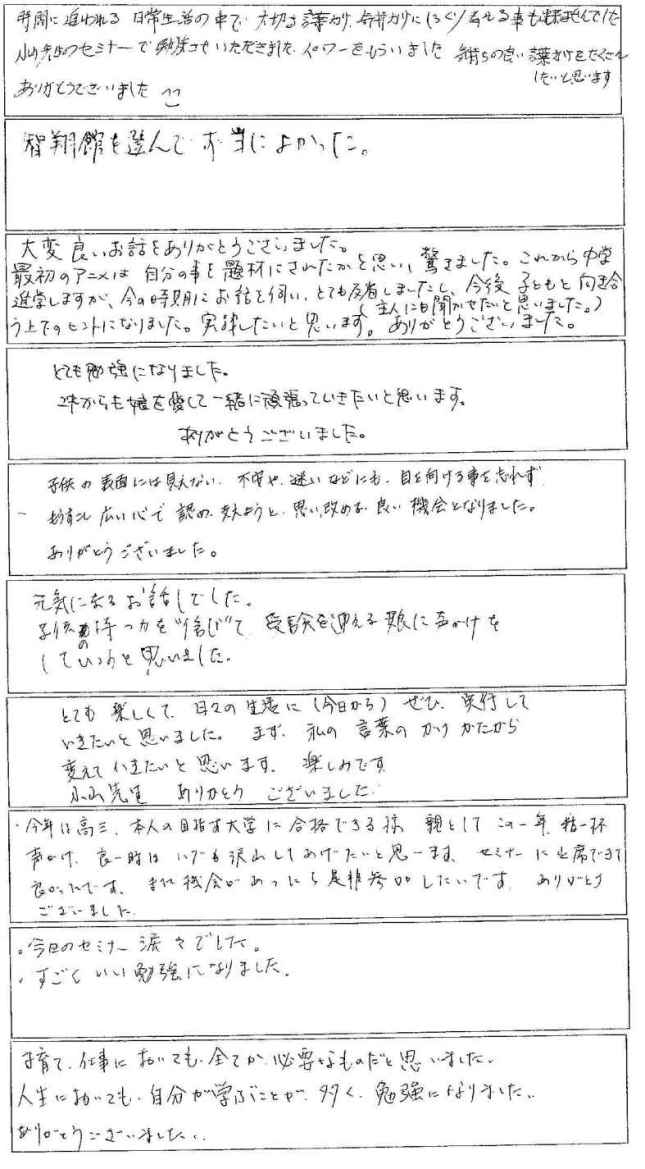 時間に追われる日常生活の中で、大切な
小山先生のセミナーで勉強させていただきました。パワーをもらいました 気持ちの良い言葉がけをたくさん
したいと思います
ありがとうございました
智翔館を選んで本当によかった。
大変良いお話をありがとうございました。
最初のアニメは自分の事を題材にされたかと思い、驚きました。これから中学
進学しますが、今の時期にお話を伺い、とても反省しましたし、今後子どもと向き合
(主人にも聞かせたいと思いました。)
う上でのヒントになりました。実践したいと思います。ありがとうございました。
とても勉強になりました。
これからも娘を愛して一緒に頑張っていきたいと思います。
ありがとうございました。
子供の表面には見えない、不安や、迷いなどにも、目を向ける事を忘れず
もう少し広い心で認め、支えようと、思い改める良い機会となりました。
ありがとうございました。
元気になるお話しでした。
子供の持つ力を"信じ"て、受験を迎える娘に声かけを
していこうと思いました。
とても楽しくて、日々の生活に(今日から)ぜひ、実行して
いきたいと思いました。まず、私の言葉のかけかたから
変えていきたいと思います。楽しみです
小山先生 ありがとうございました。
・今年は高三、本人の目指す大学に合格できる様、親としてこの一年、精一杯
声かけ、 沢山してあげたいと思います。セミナーに出席できて
良かったです。また機会があったら是非参加したいです。ありがとう
ございました。
・今日のセミナー涙々でした。
・すごくいい勉強になりました。
子育て、仕事においても、全てが必要なものだと思いました。
人生においても、自分が学ぶことが、多く、勉強になりました。
ありがとうございました。